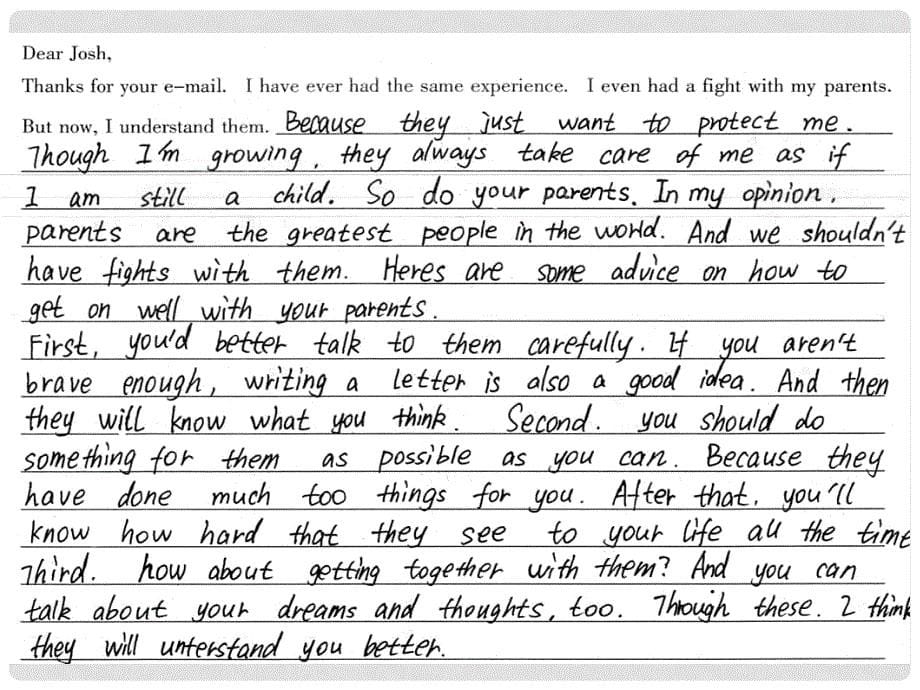 Dear Josh,
Thanks for your e-mail. I have ever had the same experience. I even had a fight with my parents.
But now, I understand them. Because they just want to protect me.
Though I'm growing, they always take care of me as if
I am still a child. So do your parents. In my opinion,
parents are the greatest people in the world. And we shouldn't
have fights with them. Heres are some advice on how to
get on well with your parents.
First, you'd better talk to them carefully. If you aren't
brave enough, writing a letter is also a good idea. And then
they will know what you think. Second. you should do
something for them as possible as you can. Because they
have done much too things for you. After that, you'll
know how hard that they see to your life all the time
Third. how about getting together with them? And you can
talk about your dreams and thoughts, too. Through these. I think
they will unterstand you better.